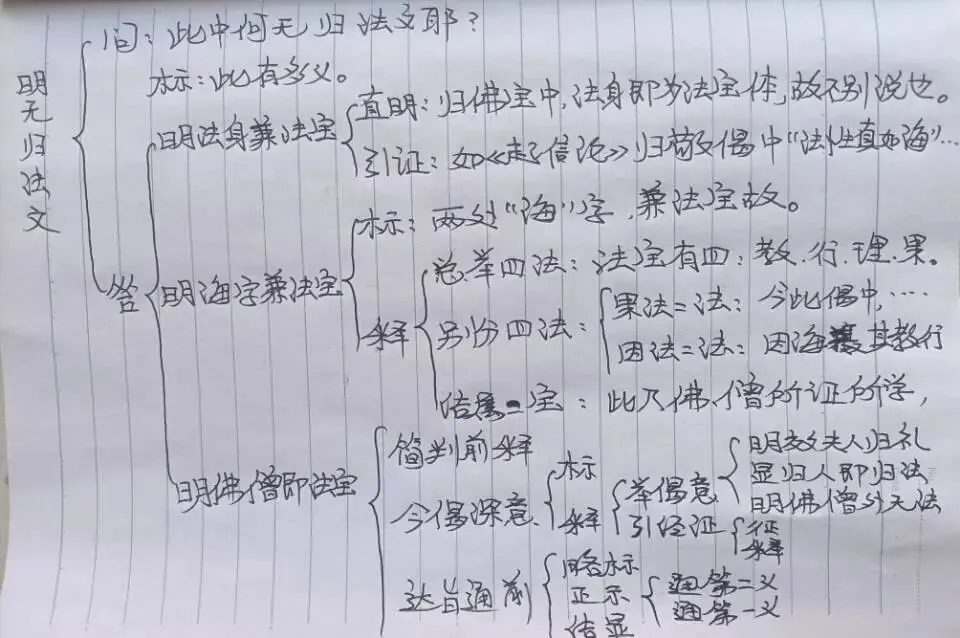 明无归法文
问：此中何无归法文耶？
答
标：此有多义。
明法身兼法宝
直明：归佛宝中，法身即为法宝体，故不别说也。
引证：如《起信论》归敬偈中"法性真如海"…
明海字兼法宝
标：两处"海"字，兼法宝故。
释
总举四法：法宝有四：教.行.理.果。
另份四法：
果法=法：今此偈中，····
因法=法：因海 其教行
结 二宝：此乃佛僧所证所学，
明佛僧即法宝
简判前释
今偈深意.
标
释
举偈意
明教夫人归礼
显归人即归法
明佛僧外无法
引经证
征
释
达旨通前
略标
正示
通第二义
通第一义
结显